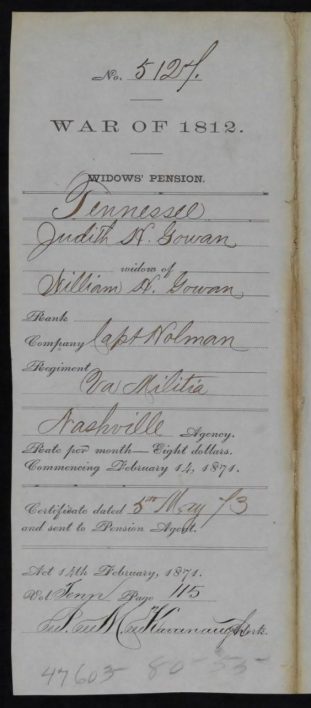 No. 5124.
WAR OF 1812.
WIDOWS' PENSION.
Tennessee
Judith H. Gowan
widow of
William H. Gowan
Rank
Company Capt Holman
Regiment
Va Militia
Nashville Agency.
Rate per month—Eight dollars.
Commencing February 14, 1871.
Certificate dated 5th May 73
and sent to Pension Agent.
Act 14th February, 1871.
Vol Tenn Page 115
Kavanaugh Clerk.
47603 80-55